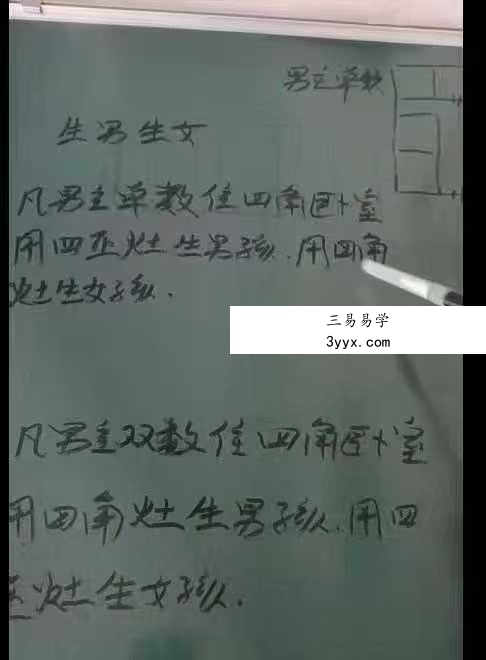 男主单数
生男生女
凡男主单数住四角卧室
用四正灶生男孩.用四角
灶生女孩.
三易易学
3yyx.com
凡男主双数住四角卧室
用四角灶生男孩.用四
正灶生女孩.